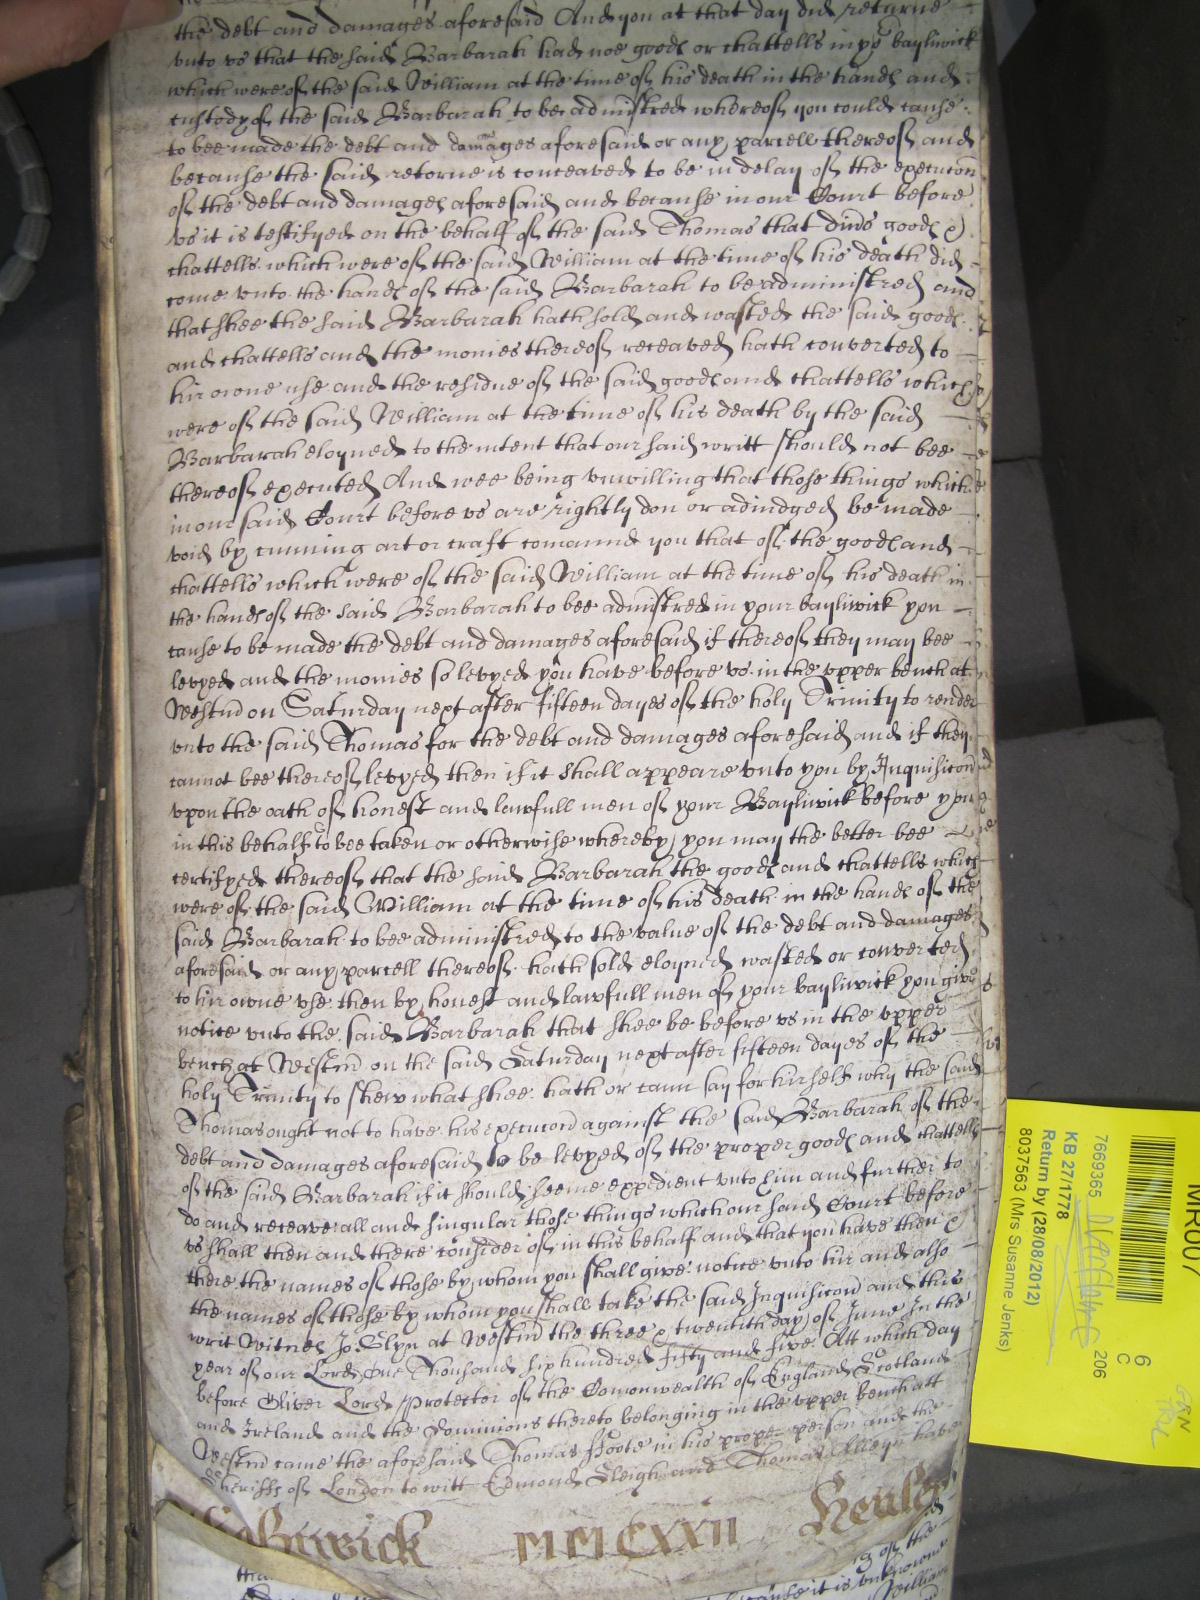 the debt and damages aforesaid And you at that day did returne
vnto vs that the said Barbarah had noe goods or chattells in yor bayliwick
which were of the said William at the time of his death in the hands and
custody of the said Barbarah to bee admistred whereof you could cause
to bee made the debt and damages aforesaid or any parcell thereof and
because the said retorne is conceaved to be in delay of the execucon
of the debt and damages aforesaid and because in our Court before
vs it is testifyed on the behalf of the said Thomas that divs goods &
chattells which were of the said William at the time of his death did
come vnto the hands of the said Barbarah to be administred and
that shee the said Barbarah hath sold and wasted the said goods
and chattells and the monies thereof receaved hath converted to
hir owne use and the residue of the said goods and chattells which
were of the said William at the time of his death by the said
Barbarah eloyned to the intent that our said writt should not bee
thereof executed And wee being vnwilling that those things which
in our said Court before vs are rightly don or adiudged be made
void by cunning art or craft comaund you that of the goods and
chattells which were of the said William at the time of his death in
the hands of the said Barbarah to bee admistred in your bayliwick you
cause to be made the debt and damages aforesaid if thereof they may bee
levyed and the monies so levyed you have before vs in the vpper bench at
Westmr on Saturday next after fifteen dayes of the holy Trinity to render
vnto the said Thomas for the debt and damages aforesaid and if they
cannot bee thereof levyed then if it shall appeare vnto you by Inquisicon
vpon the oath of honest and lawfull men of your Bayliwick before you
in this behalf to bee taken or otherwise whereby you may the better bee
certifyed thereof that the said Barbarah the goods and chattells which
were of the said William at the time of his death in the hands of the
said Barbarah to bee administred to the value of the debt and damages
aforesaid or any parcell thereof hath sold eloyned wasted or converted
to hir owne vse then by honest and lawfull men of your bayliwick you give
notice vnto the said Barbarah that shee be before vs in the vpper
bench at Westmr on the said Saturday next after fifteen dayes of the
holy Trinity to shew what shee hath or cann say for hirself why the said
Thomas ought not to have his execucon against the said Barbarah of the
debt and damages aforesaid to be levyed of the proper goods and chattells
of the said Barbarah if it should seeme expedient vnto him and further to
do and receave all and singular those things which our said Court before
vs shall then and there consider of in this behalf and that you have then &
there the names of those by whom you shall give notice vnto hir and also
the names of those by whom you shall take the said Inquisicon and this
writ Witnes Jo: Glyn at Westmr the three & twentith day of June In the
year of our Lord one Thousand six hundred fifty and five. Att which day
before Oliver Lord Protector of the Comonwealth of England Scotland
and Ireland and the Dominions thereto belonging in the vpper bench att
Westmr came the aforesaid Thomas Foote in his proper person and the
Sheriffs of London to witt Edmond Sleigh and Thomas Alleyn have
MMCXXII
g of the
cause it is vnknowne
William
MR007
6
C
7669365
206
KB 27/1778
Return by (28/08/2012)
8037563 (Mrs Susanne Jenks)